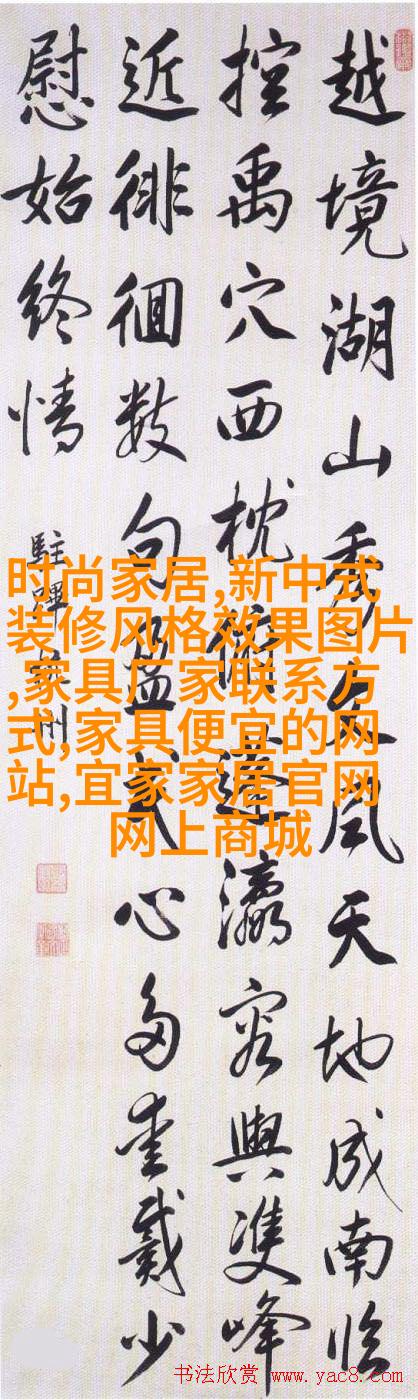 越境湖山秀文風天地成南臨
控禹穴西枕俯蓬瀛容與雙峰
近徘徊數句盈心多愛戴少
慰始終情
駐蹕州
时尚家居,新中式
装修风格效果图片
,家具厂家联系方
式,家具便宜的网
站,宜家家居官网
网上商城
书法欣赏 www.yac8.com